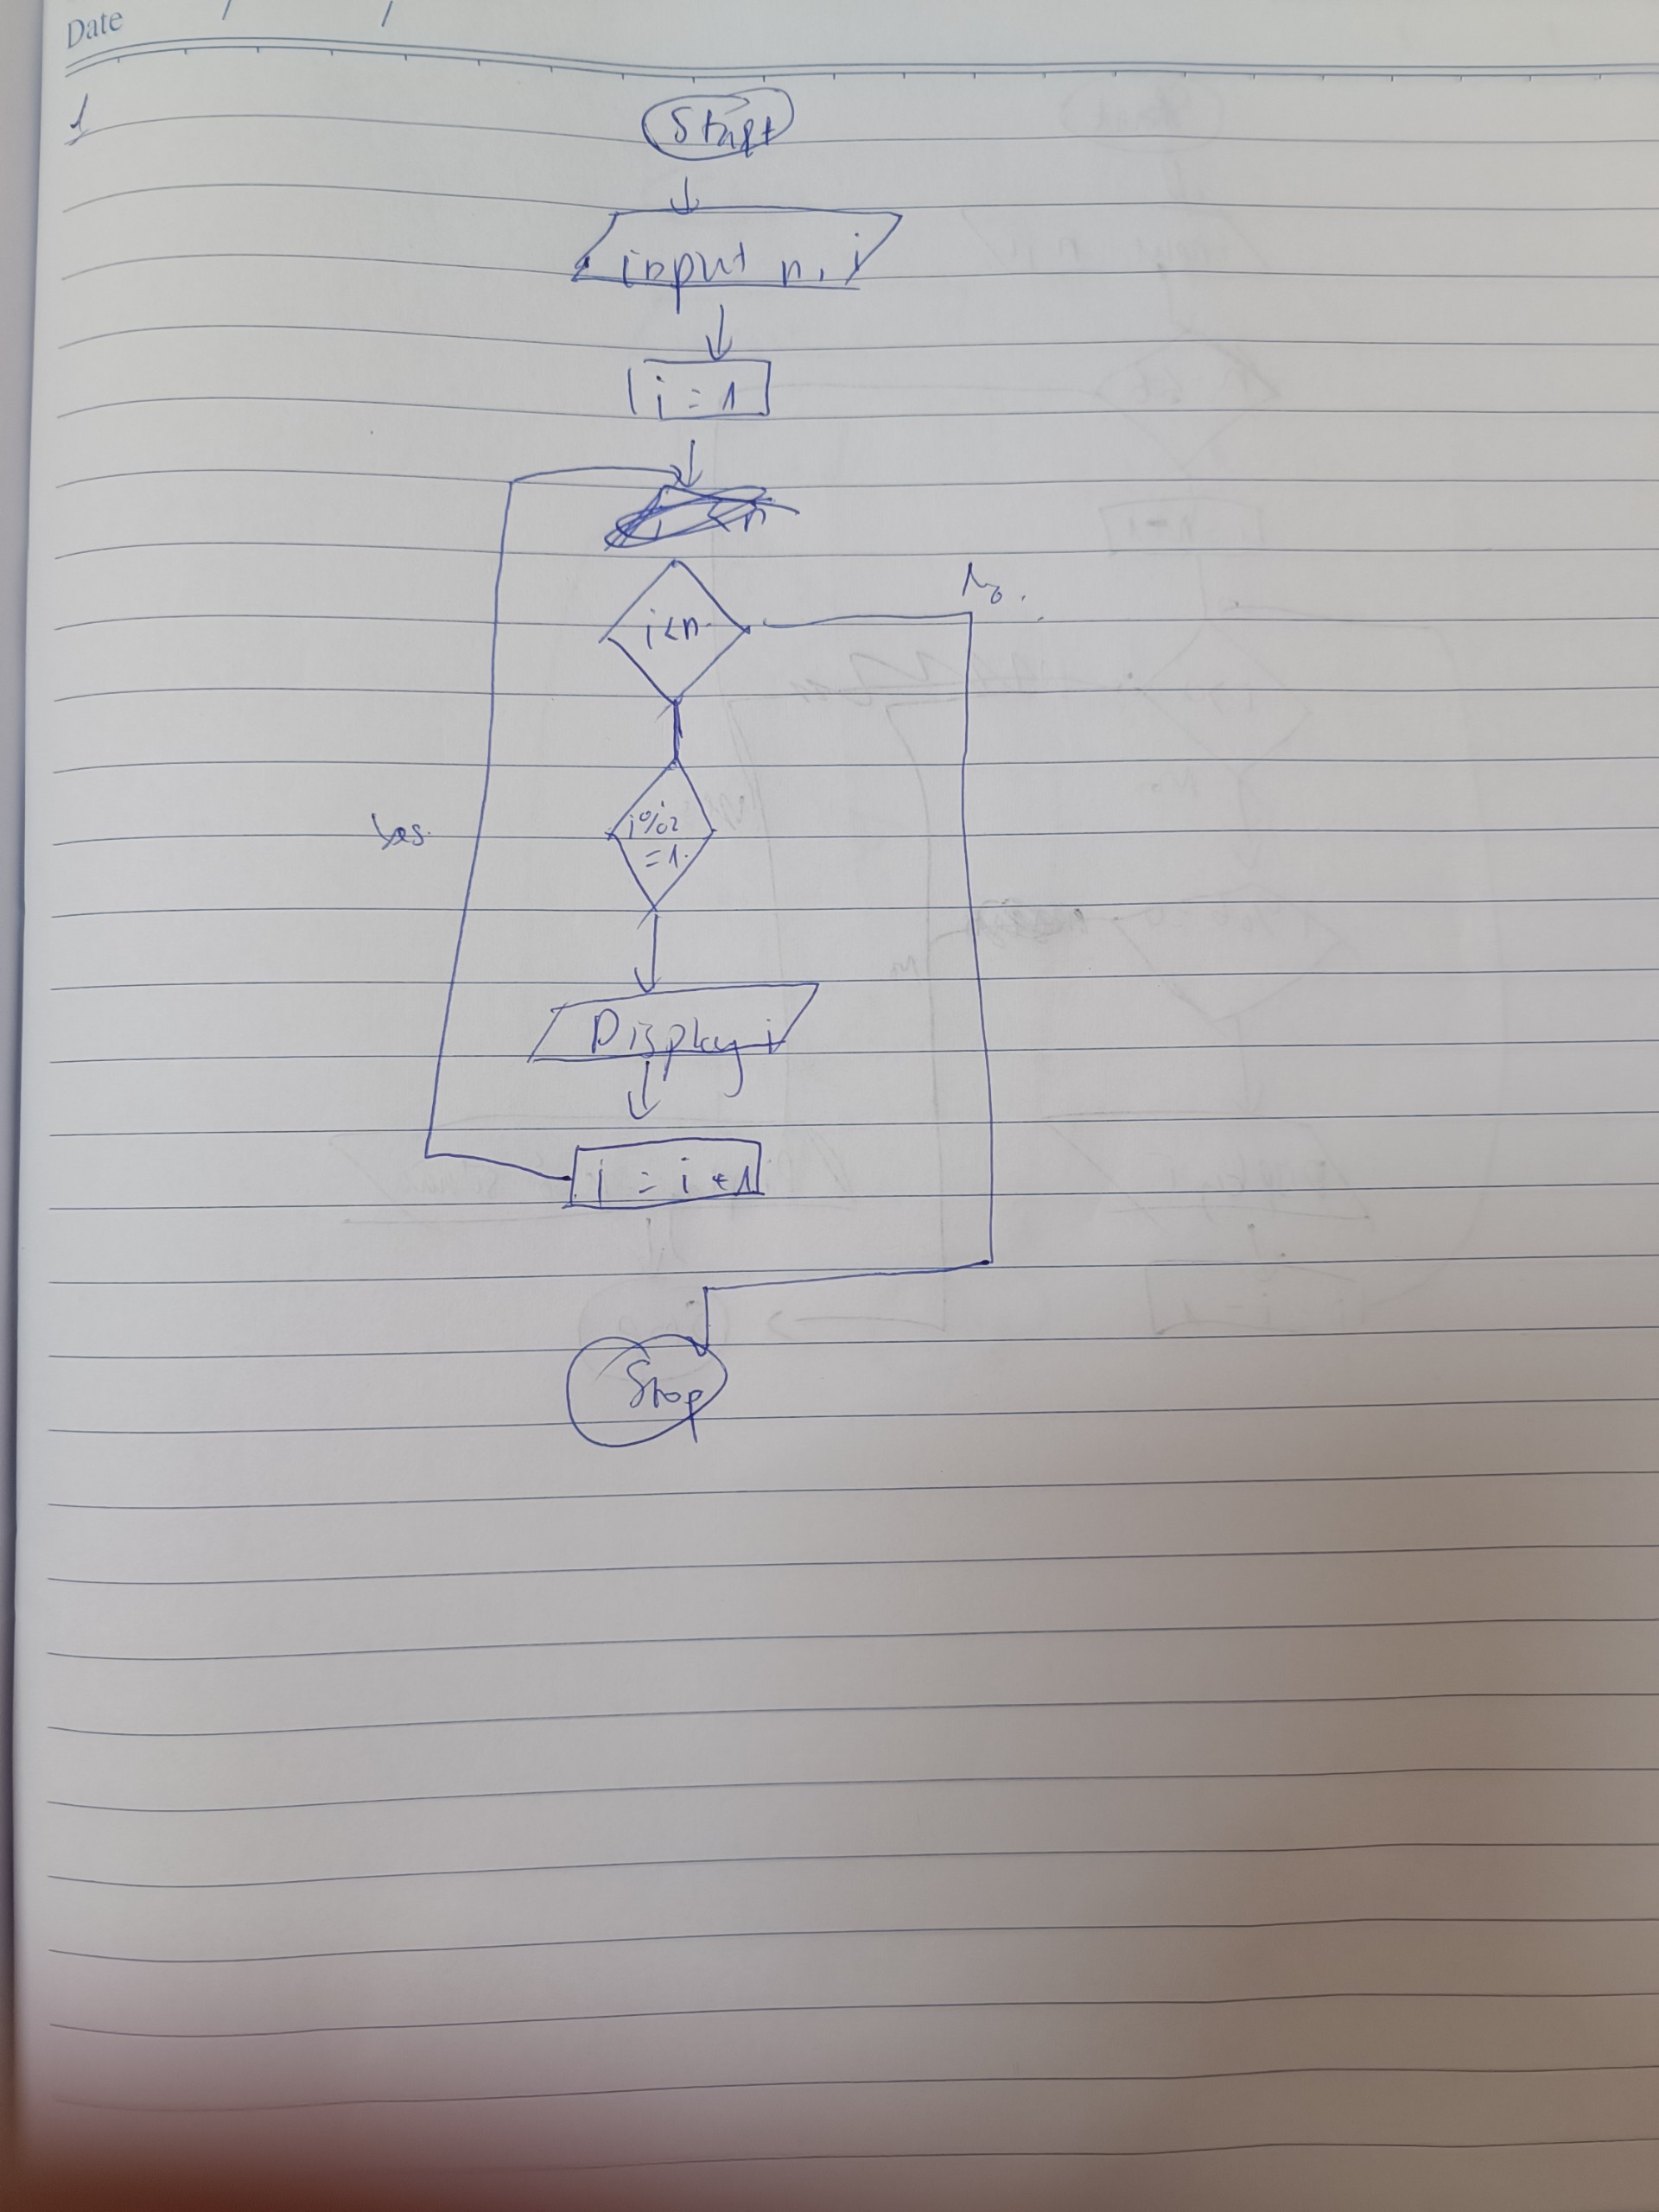 Date / /
1
Start
input n, i
i = 1
No.
i<n
i%2
=1.
Yes.
Display i
i = i + 1
Stop